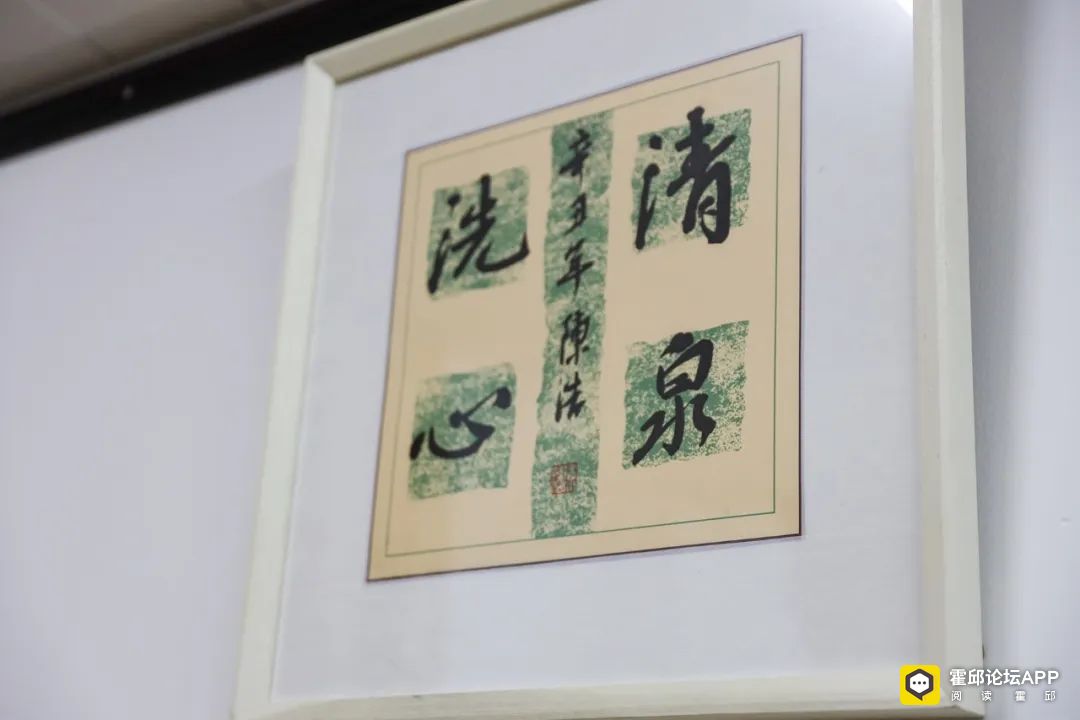 清泉
辛丑年陳浩
洗心
霍邱论坛APP
阅读霍邱